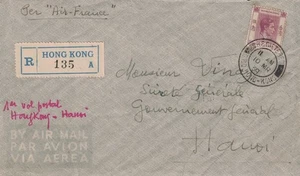 Per "Air-France"
HONG KONG
R 135 A
Monsieur
Sûreté Générale
Gouvernement Général
Hanoi
1er vol postal
HongKong - Hanoi
BY AIR MAIL
PAR AVION
VIA AEREA